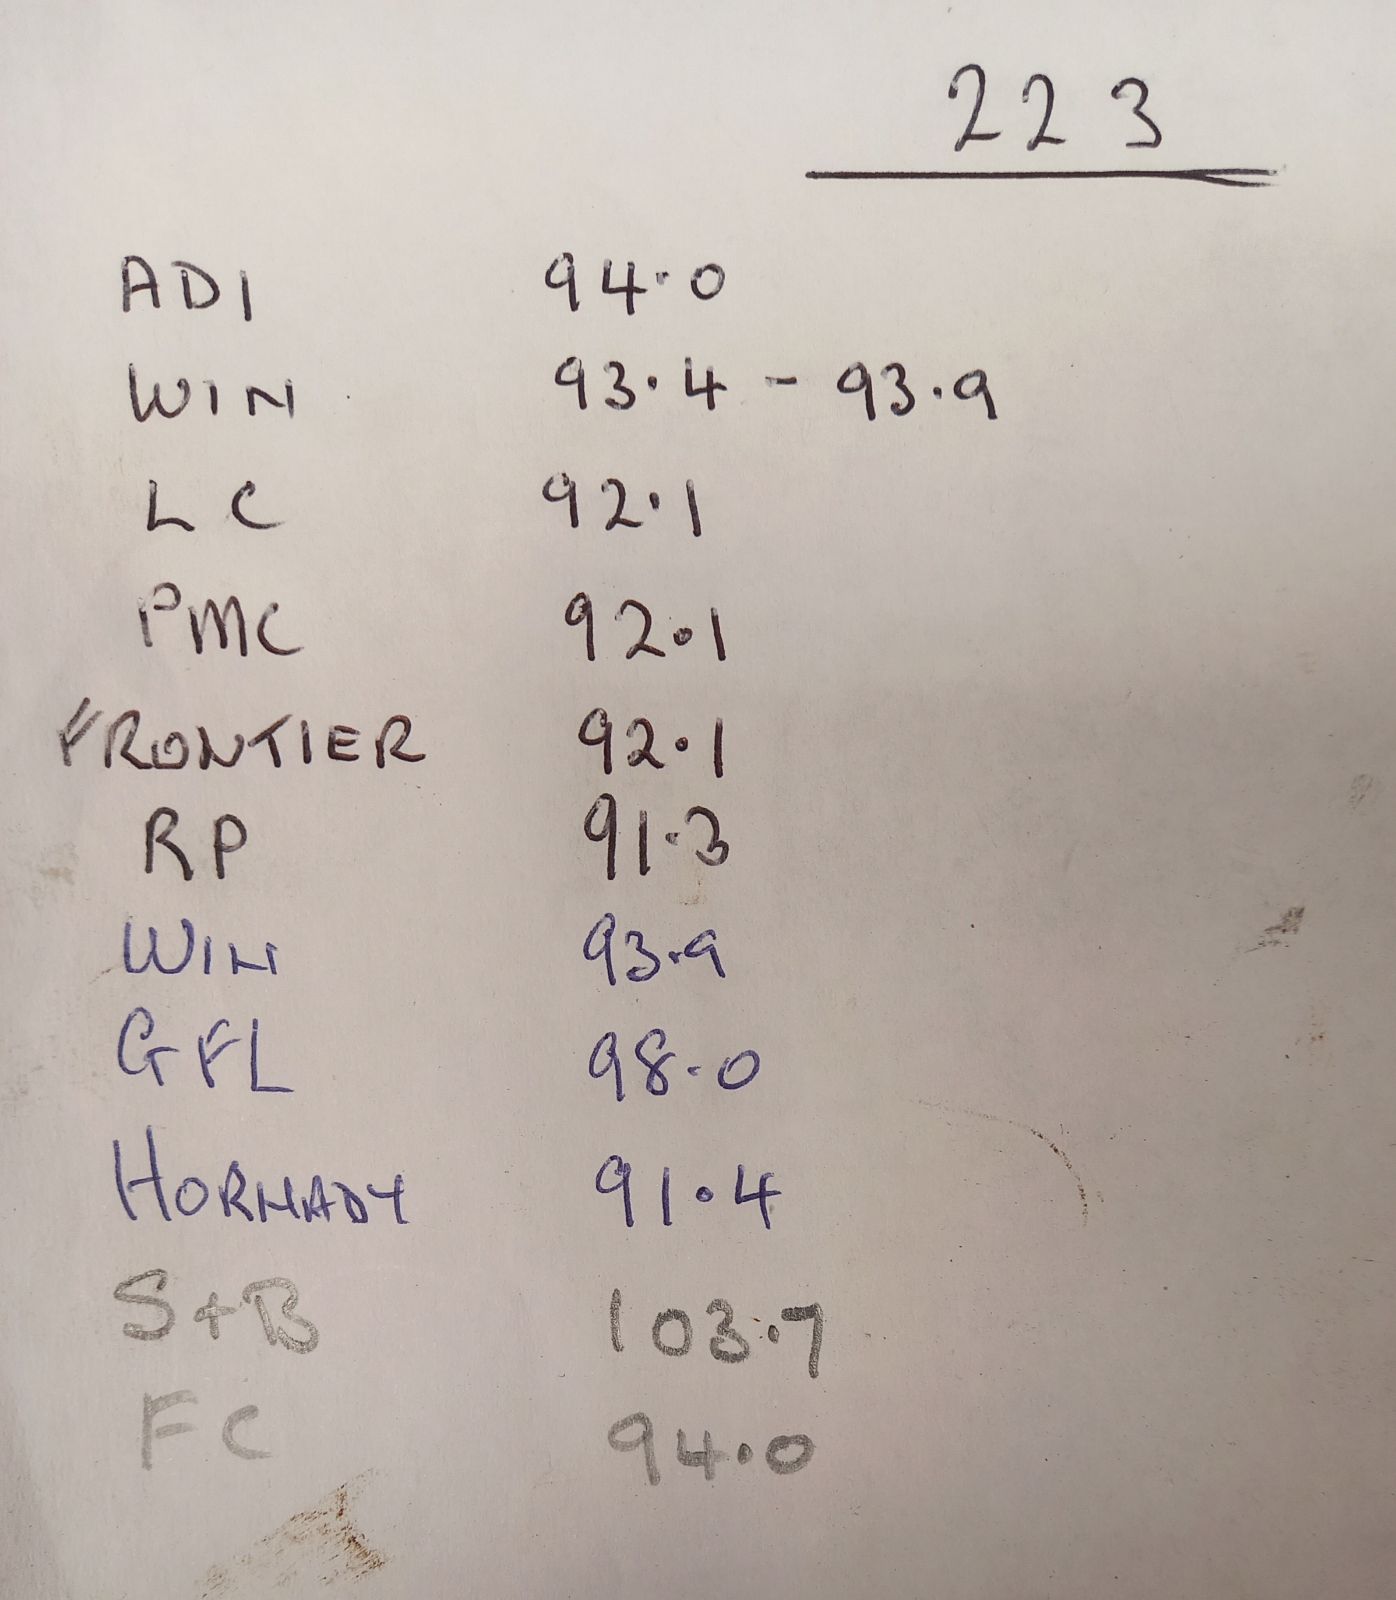 223
ADI 94.0
WIN 93.4 - 93.9
LC 92.1
PMC 92.1
FRONTIER 92.1
RP 91.3
WIN 93.9
GFL 98.0
HORNADY 91.4
S+B 103.7
FC 94.0